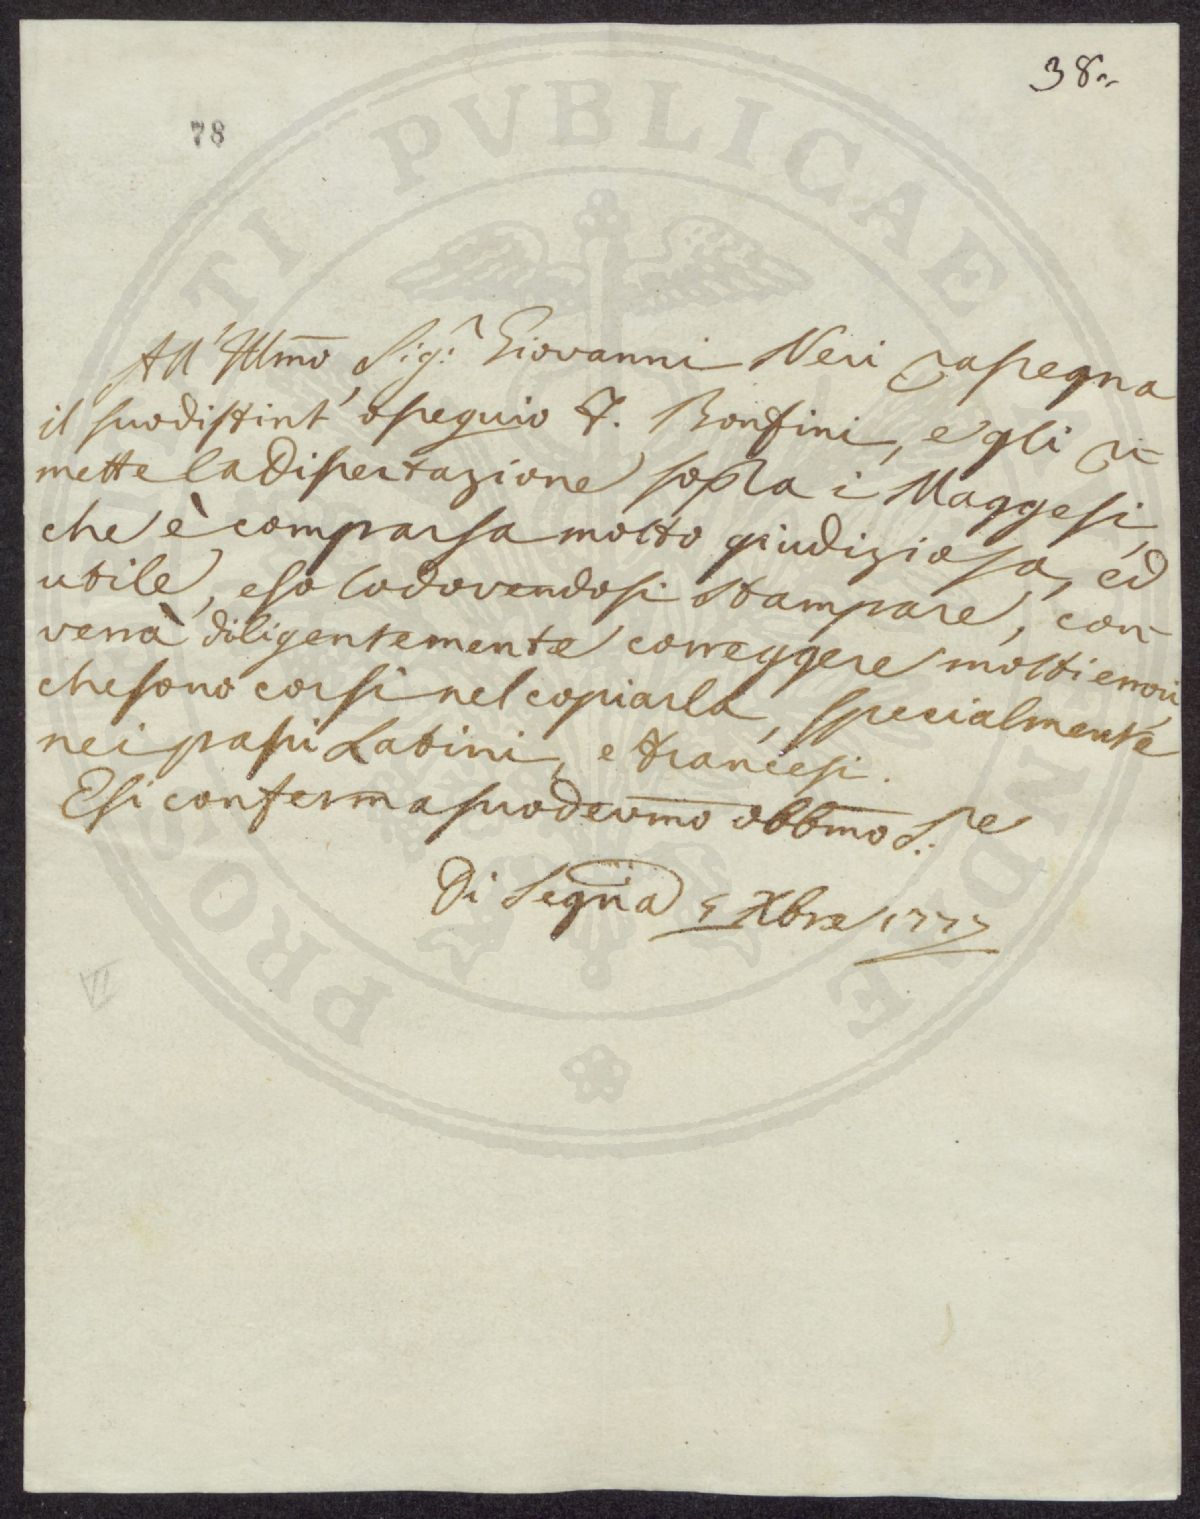 38.
78
All' Illmo Sig.r Giovanni Neri rasegna
il suo distint' osequio F. Bonfini, e gli ri=
mette la Disertazione sopra i Maggesi,
che è comparsa molto giudiziosa, ed
utile, e solo dovendosi stampare, con=
verrà diligentemente correggere molti errori,
che sono corsi nel copiarla, specialmente
nei passi Latini, e francesi.
E si conferma suo devmo obbmo S.re
Di Segria 5 Xbre 1777
VII
PROSPERITATI PVBLICAE AVGENDAE